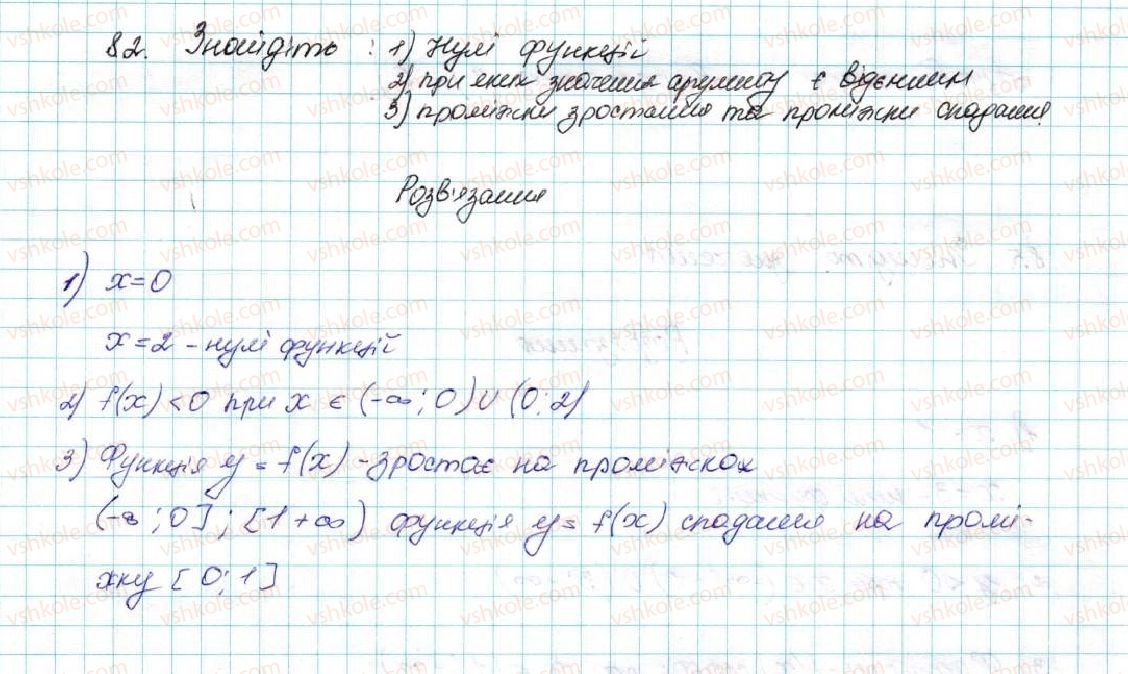 82. Знайдіть : 1) Нулі функцій
2) при яких значення аргументу є від'ємним
3) проміжки зростання та проміжки спадання.
Розв'язання
1) x=0
x=2 - нулі функцій
2) f(x)<0 при x є (-∞;0)∪(0;2)
3) Функція y=f(x) - зростає на проміжках
(-∞;0]; [1+∞) функція y=f(x) спадання на промі-
жку [0;1]